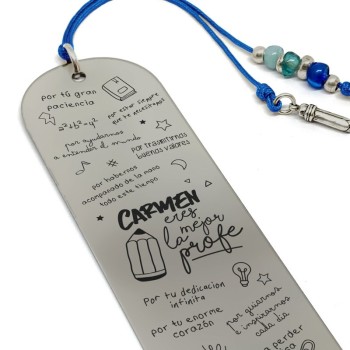 por tú gran
paciencia
por estar siempre
que te necesitamos
a²+b²=y²
por ayudarnos
a entender el mundo
por trasmitirnos
buenos valores
por habernos
acompañado de la mano
todo este tiempo
CARMEN
eres
la mejor
profe
por tu dedicación
infinita
por tu enorme
corazón
por guiarnos
e inspirarnos
cada día
perder